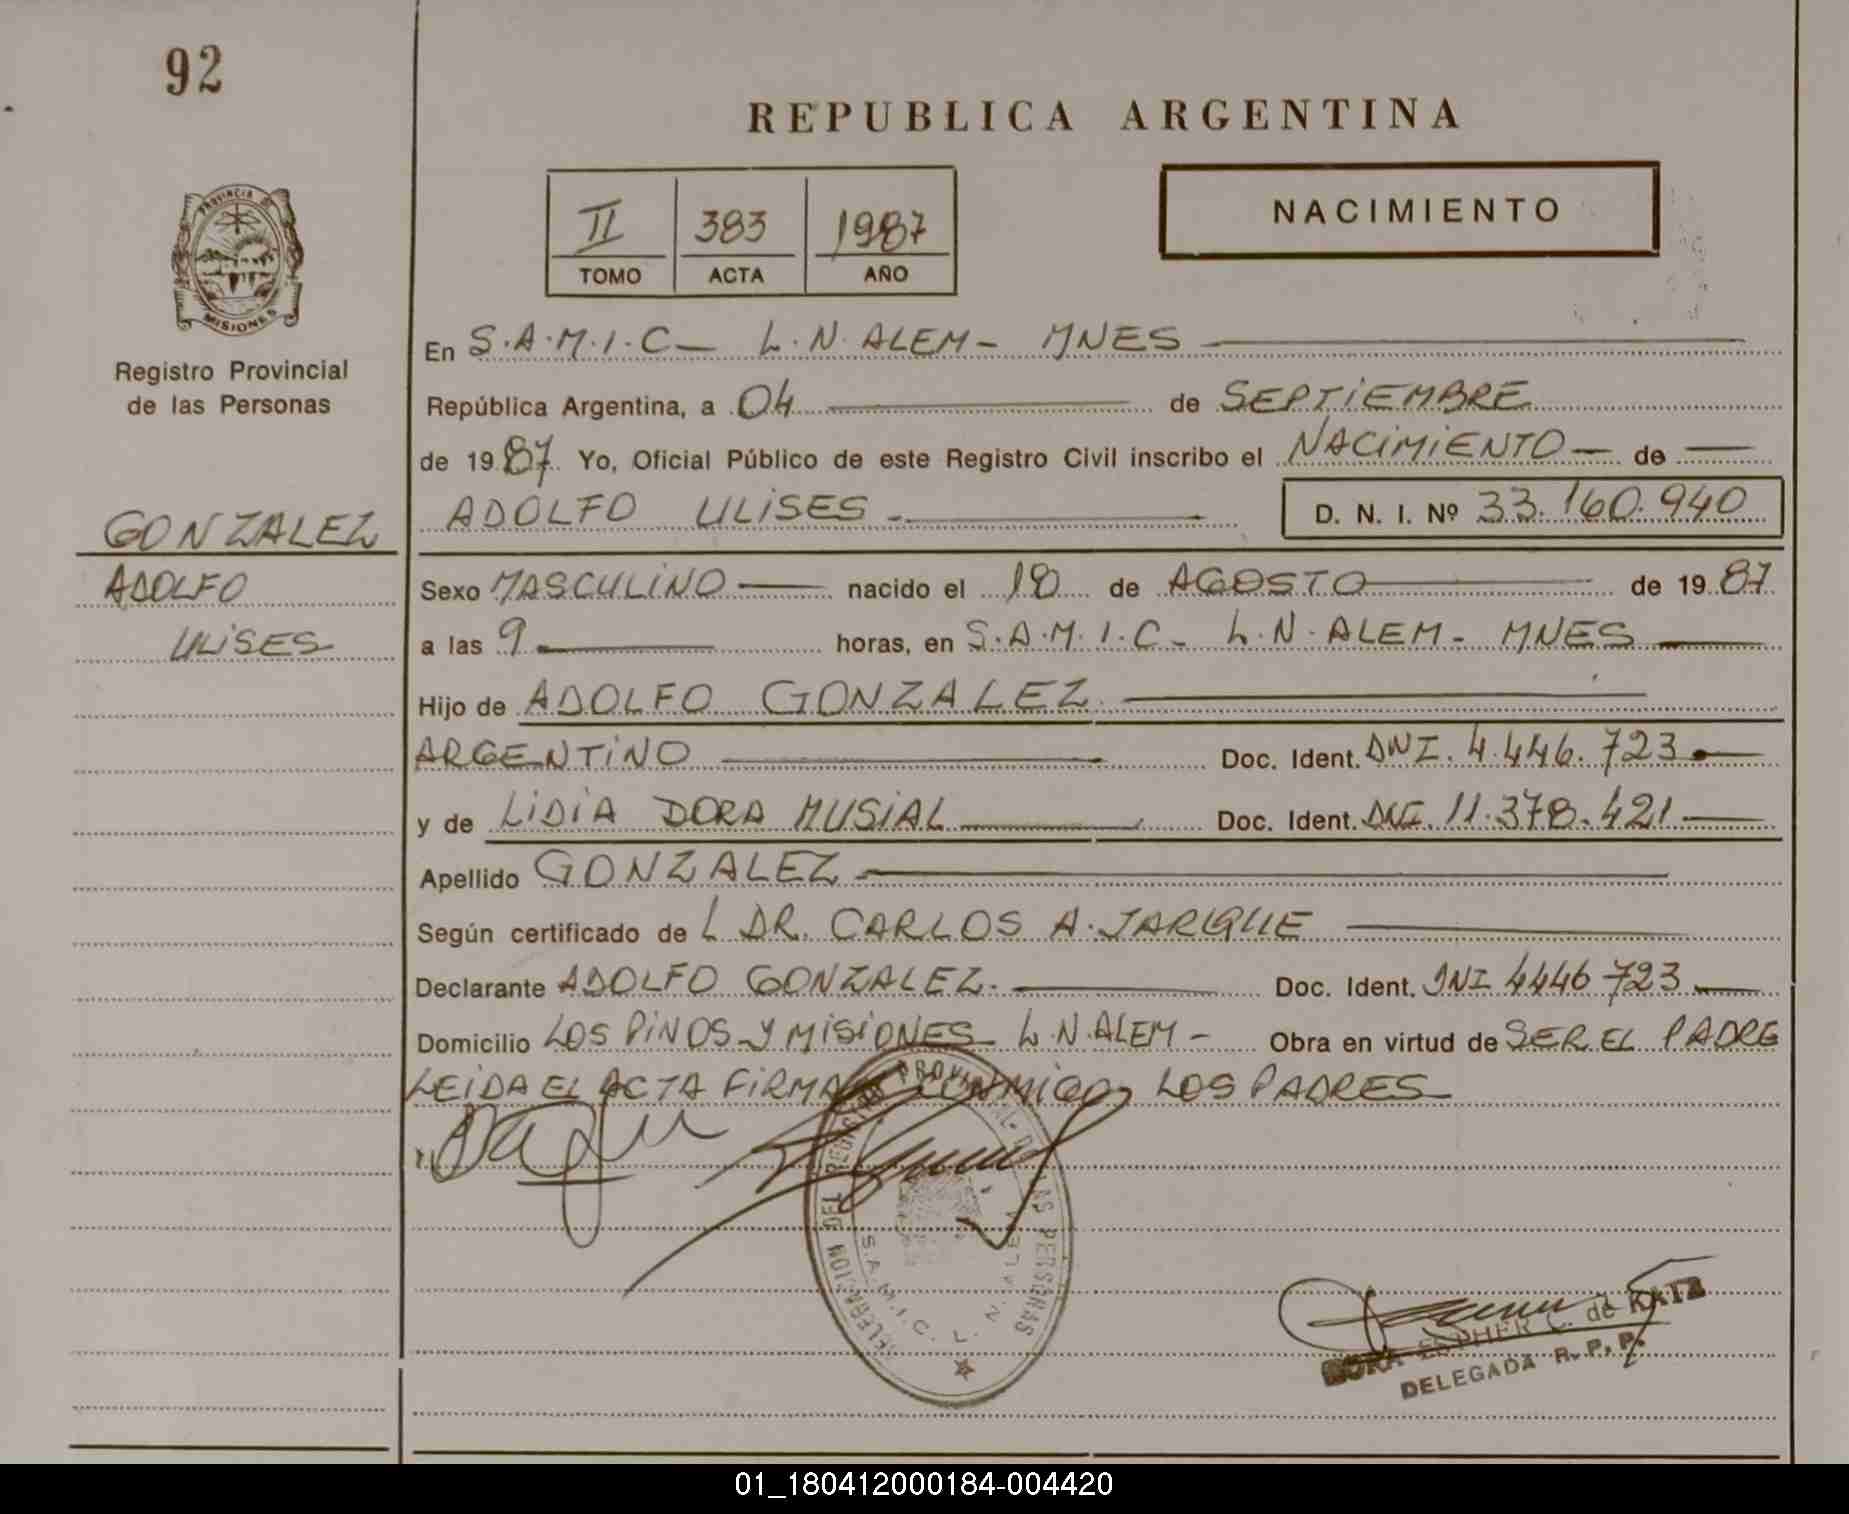 92
REPUBLICA ARGENTINA
NACIMIENTO
II 383 1987
TOMO ACTA AÑO
PROVINCIA DE
MISIONES
Registro Provincial
de las Personas
GONZALEZ
ADOLFO
ULISES
En S.A.M.I.C- L.N.ALEM- MNES
República Argentina, a 04 de SEPTIEMBRE
de 1987. Yo, Oficial Público de este Registro Civil inscribo el NACIMIENTO de
ADOLFO ULISES D. N. I. Nº 33.160.940
Sexo MASCULINO nacido el 18 de AGOSTO de 1987
a las 9 horas, en S.A.M.I.C- L.N.ALEM- MNES
Hijo de ADOLFO GONZALEZ
ARGENTINO Doc. Ident. DNI. 4.446.723
y de LIDIA DORA MUSIAL Doc. Ident. DNI. 11.378.421
Apellido GONZALEZ
Según certificado de L DR. CARLOS A. JARQUE
Declarante ADOLFO GONZALEZ. Doc. Ident. DNI 4446723
Domicilio LOS PINOS Y MISIONES L.N.ALEM- Obra en virtud de SER EL PADRE
LEIDA EL ACTA FIRMAN CONMIGO LOS PADRES
DELEGACION DEL REGISTRO PROVINCIAL DE LAS PERSONAS
S.A.M.I.C. L. N. ALEM
ESTHER C. de KATZ
DELEGADA R. P. P.
01_180412000184-004420